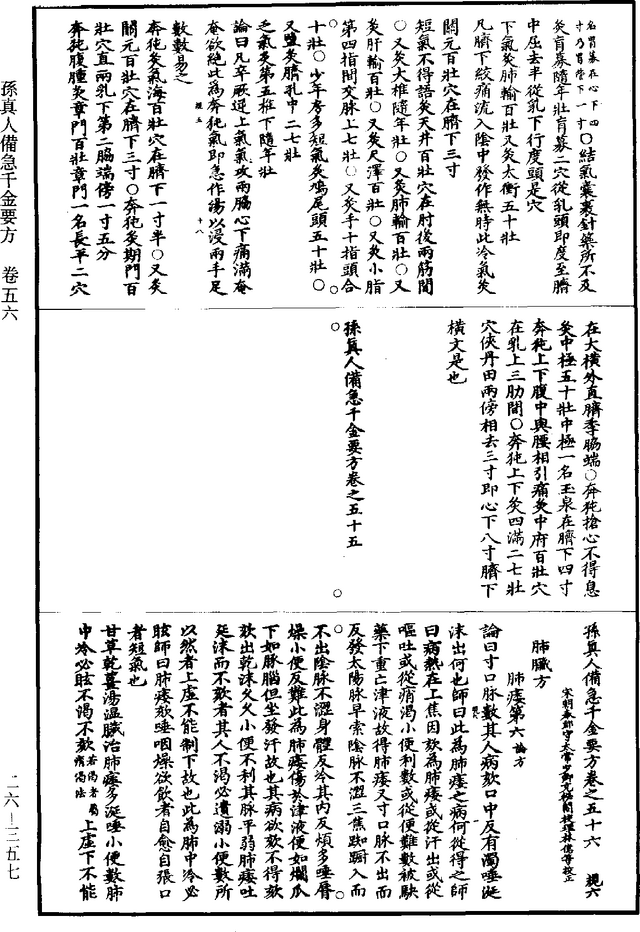 孫真人備急千金要方　卷五六
名胃募在心下四
寸乃胃管下一寸〇結氣囊裹針藥所不及
灸肓募隨年壯肓募二穴從乳頭即度至臍
中屈去半從乳下行度頭是穴
下氣灸肺輸百壯又灸太衝五十壯
凡臍下絞痛流入陰中發作無時此冷氣灸
關元百壯穴在臍下三寸
短氣不得語灸天井百壯穴在肘後兩筋間
〇又灸大椎隨年壯〇又灸肺輸百壯〇又
灸肝輸百壯〇又灸尺澤百壯〇又灸小指
第四指間交脉上七壯〇又灸手十指頭合
十壯〇少年房多短氣灸鳩尾頭五十壯〇
又鹽灸臍孔中二七壯
乏氣灸第五椎下隨年壯
論曰凡卒厥逆上氣氣攻兩脇心下痛滿奄
奄欲絕此為奔㹠氣即急作湯以浸兩手足
數數易之
奔㹠灸氣海百壯穴在臍下一寸半〇又灸
關元百壯穴在臍下三寸〇奔㹠灸期門百
壯穴直兩乳下第二脇端傍一寸五分
奔㹠腹腫灸章門百壯章門一名長平二穴
在大橫外直臍季脇端〇奔㹠搶心不得息
灸中極五十壯中極一名玉泉在臍下四寸
奔㹠上下腹中與腰相引痛灸中府百壯穴
在乳上三肋間〇奔㹠上下灸四滿二七壯
穴俠丹田兩傍相去三寸即心下八寸臍下
橫文是也
孫真人備急千金要方卷之五十五
孫真人備急千金要方卷之五十六
宋朝奉郎守太常少卿充秘閣校理林億等校正
肺臟方
肺痿第六 論方
論曰寸口脉數其人病欬口中反有濁唾涎
沫出何也師曰此為肺痿之病何從得之師
曰病熱在上焦因欬為肺痿或從汗出或從
嘔吐或從痟渴小便利數或從便難數被駃
藥下重亡津液故得肺痿又寸口脉不出而
反發太陽脉早索陰脉不澀三焦踟蹰入而
不出陰脉不澀身體反冷其内反煩多唾唇
燥小便反難此為肺痿傷於津液便如爛瓜
下如豚腦但坐發汗故也其病欲欬不得欬
欬出乾沫久久小便不利其脉平弱肺痿吐
涎沫而不欬者其人不渴必遺溺小便數所
以然者上虛不能制下故也此為肺中冷必
眩師曰肺痿欬唾咽燥欲飲者自愈自張口
者短氣也
甘草乾薑湯溫臟治肺痿多涎唾小便數肺
中冷必眩不渴不欬 上虛下不能
二六—三九七